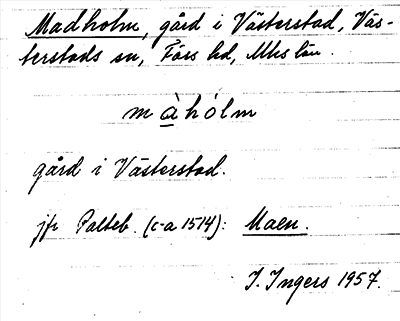 Madholm, gård i Västerstad, Väs-
terstads sn, Färs hd, Mlhs län.
m à h ó l m
gård i Västerstad.
jfr Palteb. (c-a 1514): Maen.
I. Ingers 1957.